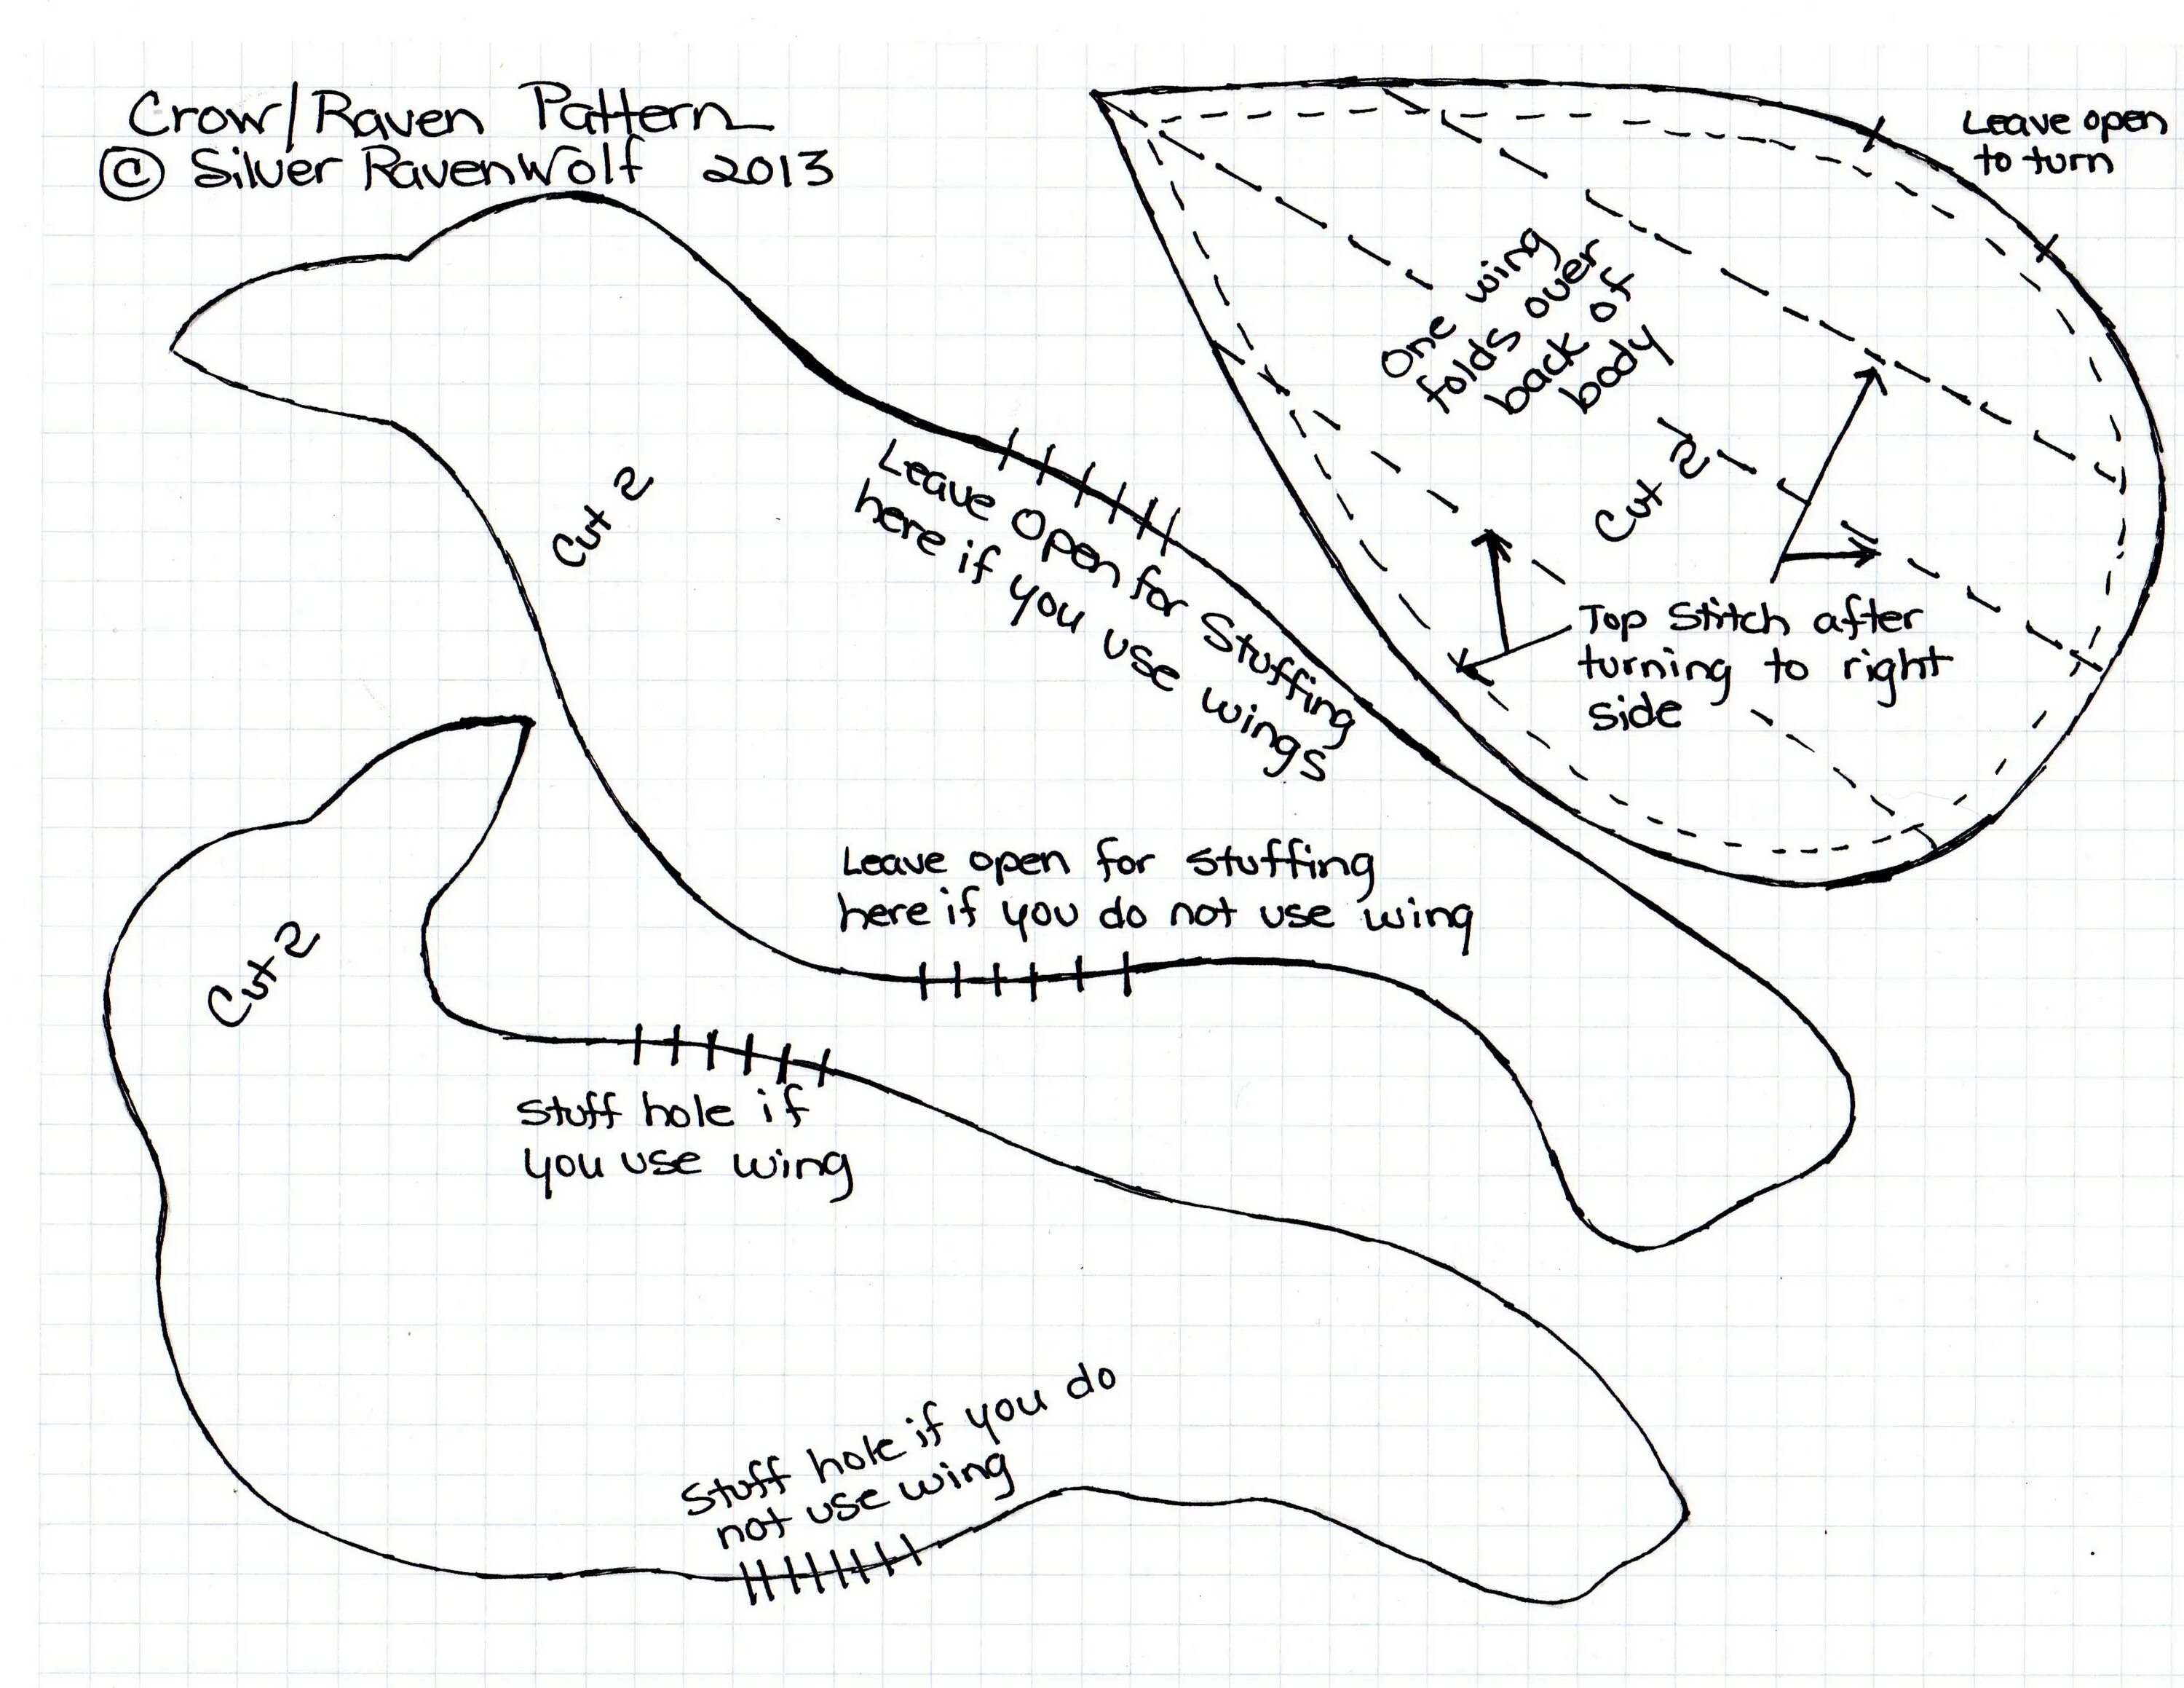 Crow/Raven Pattern
© Silver RavenWolf 2013
Leave open
to turn
One wing
folds over
back of
body
Cut 2
Top Stitch after
turning to right
side
Cut 2
Leave Open for Stuffing
here if you use wings
Leave open for stuffing
here if you do not use wing
Cut 2
Stuff hole if
you use wing
Stuff hole if you do
not use wing